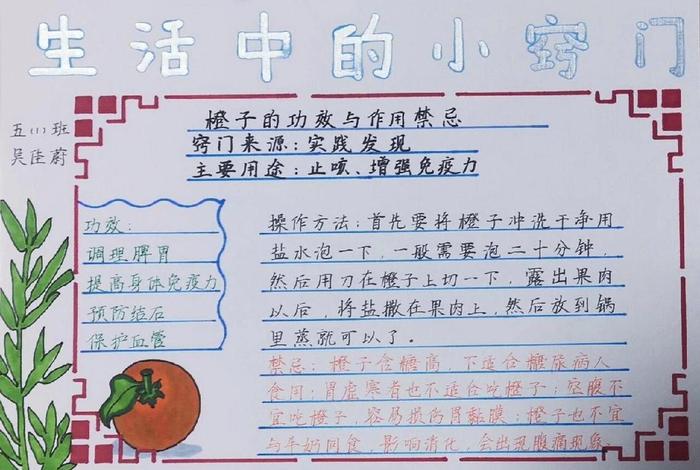 生活中的小窍门
五(1)班
吴佳蔚
橙子的功效与作用禁忌
窍门来源:实践发现
主要用途:止咳、增强免疫力
功效:
调理脾胃
提高身体免疫力
预防结石
保护血管
操作方法:首先要将橙子冲洗干净用
盐水泡一下,一般需要泡二十分钟,
然后用刀在橙子上切一下,露出果肉
以后,将盐撒在果肉上,然后放到锅
里蒸就可以了。
禁忌:橙子含糖高,不适合糖尿病人
食用;胃虚寒者也不适合吃橙子;空腹不
宜吃橙子,容易损伤胃黏膜;橙子也不宜
与牛奶同食,影响消化,会出现腹痛现象。